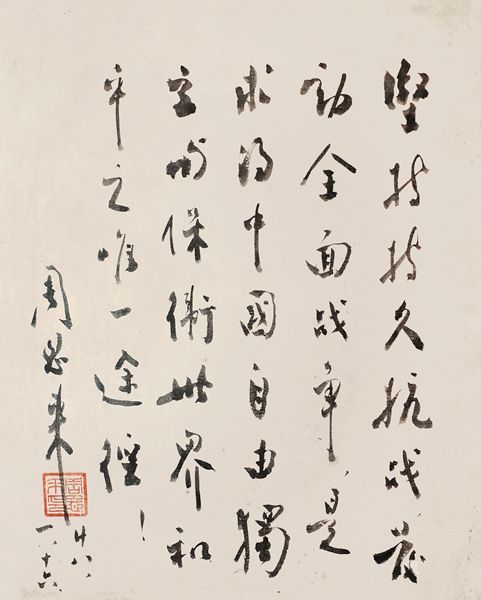 堅持持久抗战發
动全面战争、是
求得中國自由獨
立與保衛世界和
平之唯一途徑！
周恩来
廿八、
一、十六